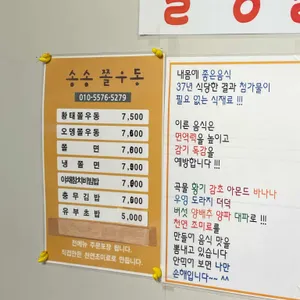 송송 쫄우동
010-5576-5279
황태쫄우동 7,500
오뎅쫄우동 6,500
쫄 면 7,000
냉 쫄 면 7,000
야채참치비빔밥 7,000
충무김밥 7,000
유부초밥 5,000
전메뉴 주문포장 됩니다.
직접만든 천연조미료로 만듭니다.
내몸에 좋은음식
37년 식당한 결과 첨가물이
필요 없는 식재료 !!!
이른 음식은
면역력을 높이고
감기 독감을
예방합니다 !!!
곡물 황기 감초 아몬드 바나나
우엉 도라지 더덕
버섯 양배추 양파 대파로 !!!
천연 조미료를
만들어 음식 맛을
뽐내고 있습니다
안먹어 보면 나만
손해입니다~ ^^